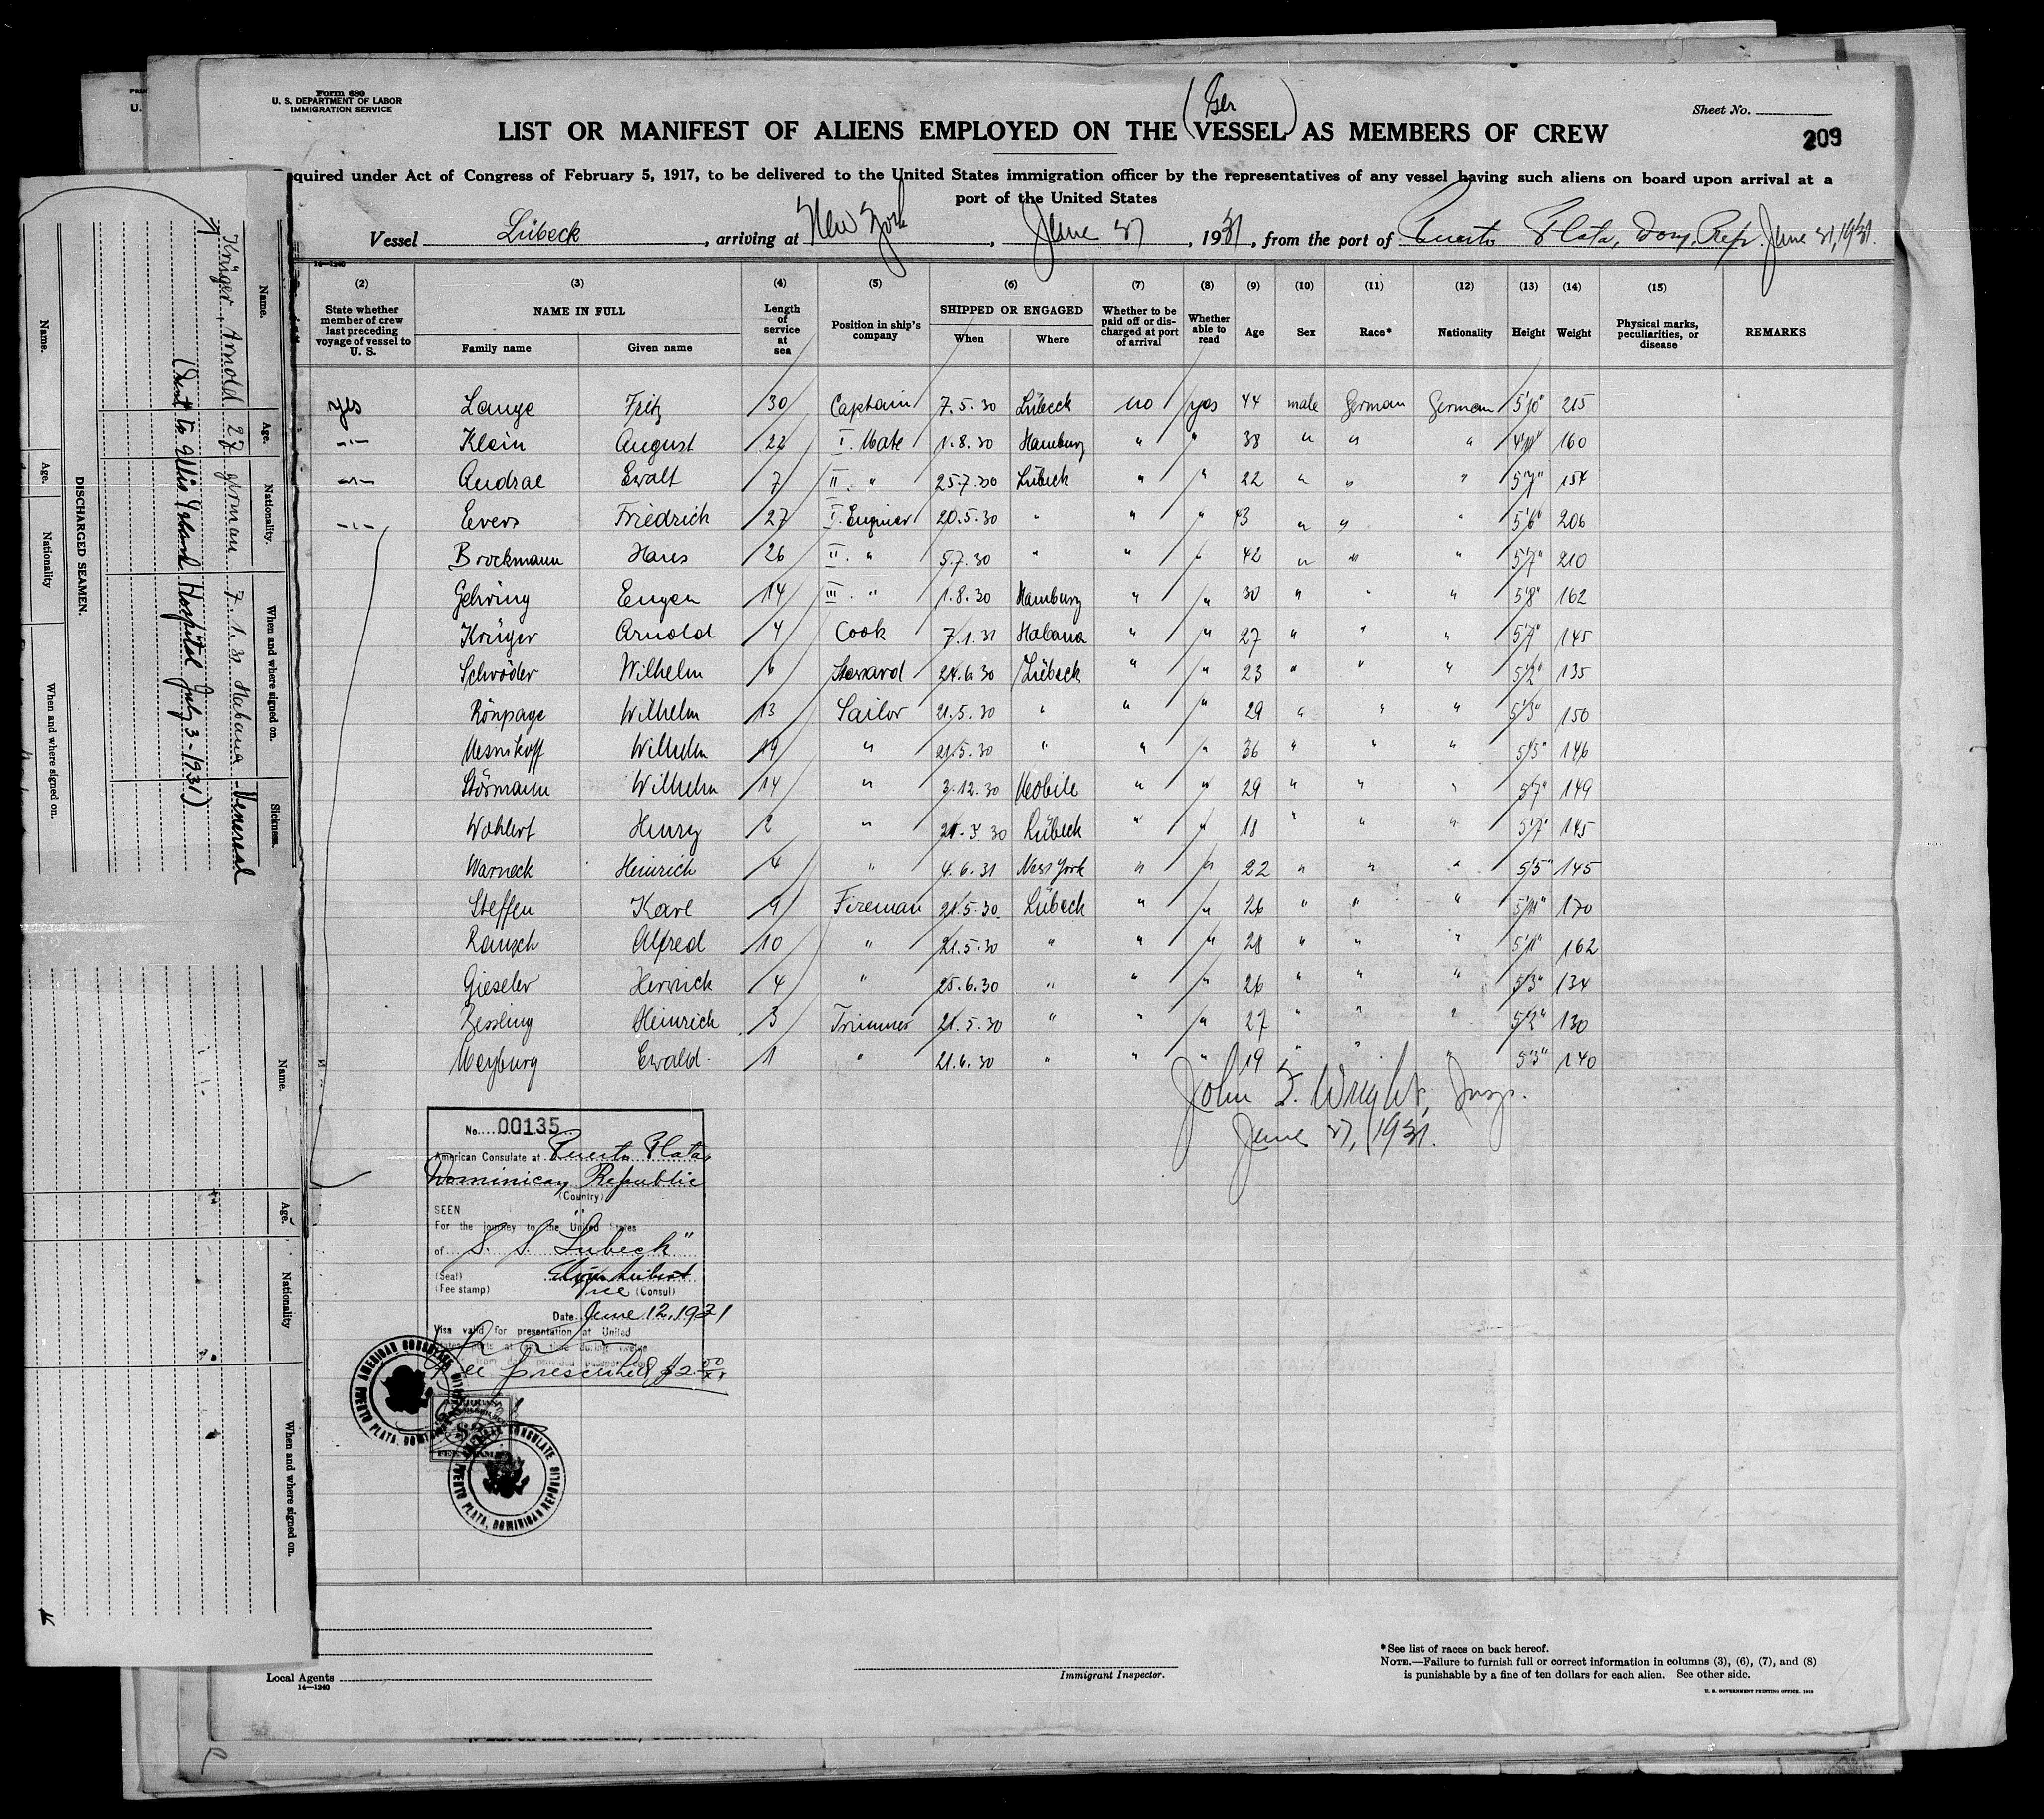 Form 680
U. S. DEPARTMENT OF LABOR
IMMIGRATION SERVICE
Sheet No.
209
(Ger)
LIST OR MANIFEST OF ALIENS EMPLOYED ON THE VESSEL AS MEMBERS OF CREW
quired under Act of Congress of February 5, 1917, to be delivered to the United States immigration officer by the representatives of any vessel having such aliens on board upon arrival at a
port of the United States
Vessel Lübeck, arriving at New York, June 1931, from the port of Puerto Plata, Dom. Rep. June 1931.
14—1240
(2) (3) (4) (5) (6) (7) (8) (9) (10) (11) (12) (13) (14) (15)
State whether member of crew last preceding voyage of vessel to U. S. NAME IN FULL Family name Given name Length of service at sea Position in ship's company SHIPPED OR ENGAGED When Where Whether to be paid off or discharged at port of arrival Whether able to read Age Sex Race* Nationality Height Weight Physical marks, peculiarities, or disease REMARKS
yes Lange Fritz 30 Captain 7.5.30 Lübeck no yes 44 male German German 5'10" 215
-"- Klein August 22 I. Mate 1.8.30 Hamburg " " 38 " " " 160
-"- Andrae Ewalt 7 II. " 25.7.30 Lübeck " " 22 " " " 5'7" 154
-"- Evers Friedrich 27 I. Enginer 20.5.30 " " " 43 " " " 5'6" 206
Brockmann Hans 26 II. " 5.7.30 " " " 42 " " " 5'7" 210
Gehring Eugen 14 III. " 1.8.30 Hamburg " " 30 " " " 5'8" 162
Krüger Arnold 4 Cook 7.1.31 Habana " " 27 " " " 5'7" 145
Schröder Wilhelm 6 Steward 24.6.30 Lübeck " " 23 " " " 5'2" 135
Rönpage Wilhelm 13 Sailor 21.5.30 " " " 29 " " " 5'3" 150
Mesnikoff Wilhelm 19 " 21.5.30 " " " 36 " " " 5'5" 146
Störmann Wilhelm 14 " 3.12.30 Mobile " " 29 " " " 5'7" 149
Wohlert Henry 2 " 21.5.30 Lübeck " " 18 " " " 5'7" 145
Warneck Heinrich 4 " 4.6.31 New York " " 22 " " " 5'5" 145
Steffen Karl 9 Fireman 21.5.30 Lübeck " " 26 " " " 5'11" 170
Rausch Alfred 10 " 21.5.30 " " " 28 " " " 5'11" 162
Gieseler Herrick 4 " 25.6.30 " " " 26 " " " 5'3" 134
Bessling Heinrich 3 Trimmer 21.5.30 " " " 27 " " " 5'2" 130
Meyburg Ewald 1 " 21.6.30 " " " 19 " " " 5'3" 140
John F. Wright, Insp.
June 1931.
No. 00135
American Consulate at Puerto Plata,
Dominican Republic
(Country)
SEEN
For the journey to the United States
of S. S. "Lubeck"
(Seal)
(Fee stamp) Vice (Consul)
Date June 12, 1931
Visa valid for presentation at United
Fee prescribed $2.00
AMERICAN CONSULATE
PUERTO PLATA, DOMINICAN REPUBLIC
AMERICAN CONSULATE
PUERTO PLATA, DOMINICAN REPUBLIC
Local Agents
14—1240
Immigrant Inspector.
*See list of races on back hereof.
NOTE.—Failure to furnish full or correct information in columns (3), (6), (7), and (8)
is punishable by a fine of ten dollars for each alien. See other side.
U. S. GOVERNMENT PRINTING OFFICE
DISCHARGED SEAMEN.
Name. Age. Nationality. When and where signed on. Sickness.
Krüger, Arnold 27 german 7.1.31 Habana Venereal
(Sent to Ellis Island Hospital July 3-1931)
Name. Age. Nationality When and where signed on.
Name. Age. Nationality When and where signed on.